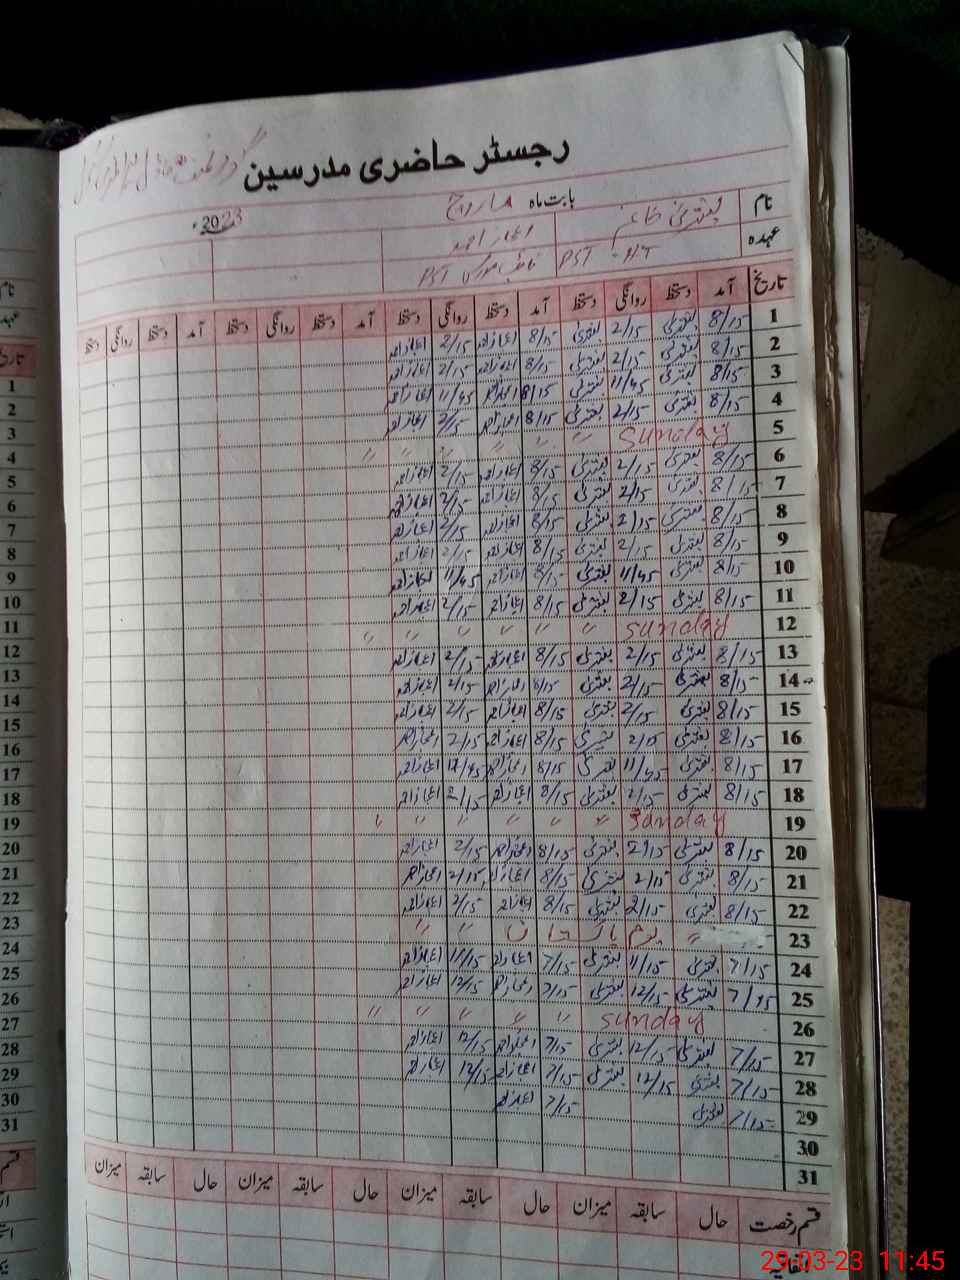 رجسٹر حاضری مدرسین
نام بابت ماہ مارچ 2023ء
عہدہ PST - HT اعجاز احمد PST
تاریخ آمد دستخط روانگی دستخط آمد دستخط روانگی دستخط آمد دستخط روانگی دستخط آمد دستخط روانگی دستخط
1 8/15 بشریٰ 2/15 بشریٰ 8/15 اعجاز احمد 2/15 اعجاز احمد
2 8/15 بشریٰ 2/15 بشریٰ 8/15 اعجاز احمد 2/15 اعجاز احمد
3 8/15 بشریٰ 11/45 بشریٰ 8/15 اعجاز احمد 11/45 اعجاز احمد
4 8/15 بشریٰ 2/15 بشریٰ 8/15 اعجاز احمد 2/15 اعجاز احمد
5 Sunday " " " " " "
6 8/15 بشریٰ 2/15 بشریٰ 8/15 اعجاز احمد 2/15 اعجاز احمد
7 8/15 بشریٰ 2/15 بشریٰ 8/15 اعجاز احمد 2/15 اعجاز احمد
8 8/15 بشریٰ 2/15 بشریٰ 8/15 اعجاز احمد 2/15 اعجاز احمد
9 8/15 بشریٰ 2/15 بشریٰ 8/15 اعجاز احمد 2/15 اعجاز احمد
10 8/15 بشریٰ 11/45 بشریٰ 8/15 اعجاز احمد 11/45 اعجاز احمد
11 8/15 بشریٰ 2/15 بشریٰ 8/15 اعجاز احمد 2/15 اعجاز احمد
12 Sunday " " " " " "
13 8/15 بشریٰ 2/15 بشریٰ 8/15 اعجاز احمد 2/15 اعجاز احمد
14 8/15 بشریٰ 2/15 بشریٰ 8/15 اعجاز احمد 2/15 اعجاز احمد
15 8/15 بشریٰ 2/15 بشریٰ 8/15 اعجاز احمد 2/15 اعجاز احمد
16 8/15 بشریٰ 2/15 بشریٰ 8/15 اعجاز احمد 2/15 اعجاز احمد
17 8/15 بشریٰ 11/45 بشریٰ 8/15 اعجاز احمد اعجاز احمد
18 8/15 بشریٰ 2/15 بشریٰ 8/15 اعجاز احمد 2/15 اعجاز احمد
19 Sunday " " " " " "
20 8/15 بشریٰ 2/15 بشریٰ 8/15 اعجاز احمد 2/15 اعجاز احمد
21 8/15 بشریٰ 2/15 بشریٰ 8/15 اعجاز احمد 2/15 اعجاز احمد
22 8/15 بشریٰ 2/15 بشریٰ 8/15 اعجاز احمد 2/15 اعجاز احمد
23 " یوم پاکستان " "
24 7/15 بشریٰ 11/15 بشریٰ 7/15 اعجاز احمد 11/15 اعجاز احمد
25 7/15 بشریٰ 12/15 بشریٰ 7/15 اعجاز احمد 12/15 اعجاز احمد
26 Sunday " " " " "
27 7/15 بشریٰ 12/15 بشریٰ 7/15 اعجاز احمد 12/15 اعجاز احمد
28 7/15 بشریٰ 12/15 بشریٰ 7/15 اعجاز احمد 12/15 اعجاز احمد
29 7/15 بشریٰ 7/15 اعجاز احمد
30
31
قسم رخصت حال سابقہ میزان حال سابقہ میزان حال سابقہ میزان حال سابقہ میزان
29-03-23 11:45
نام
عہدہ
تاریخ
1
2
3
4
5
6
7
8
9
10
11
12
13
14
15
16
17
18
19
20
21
22
23
24
25
26
27
28
29
30
31